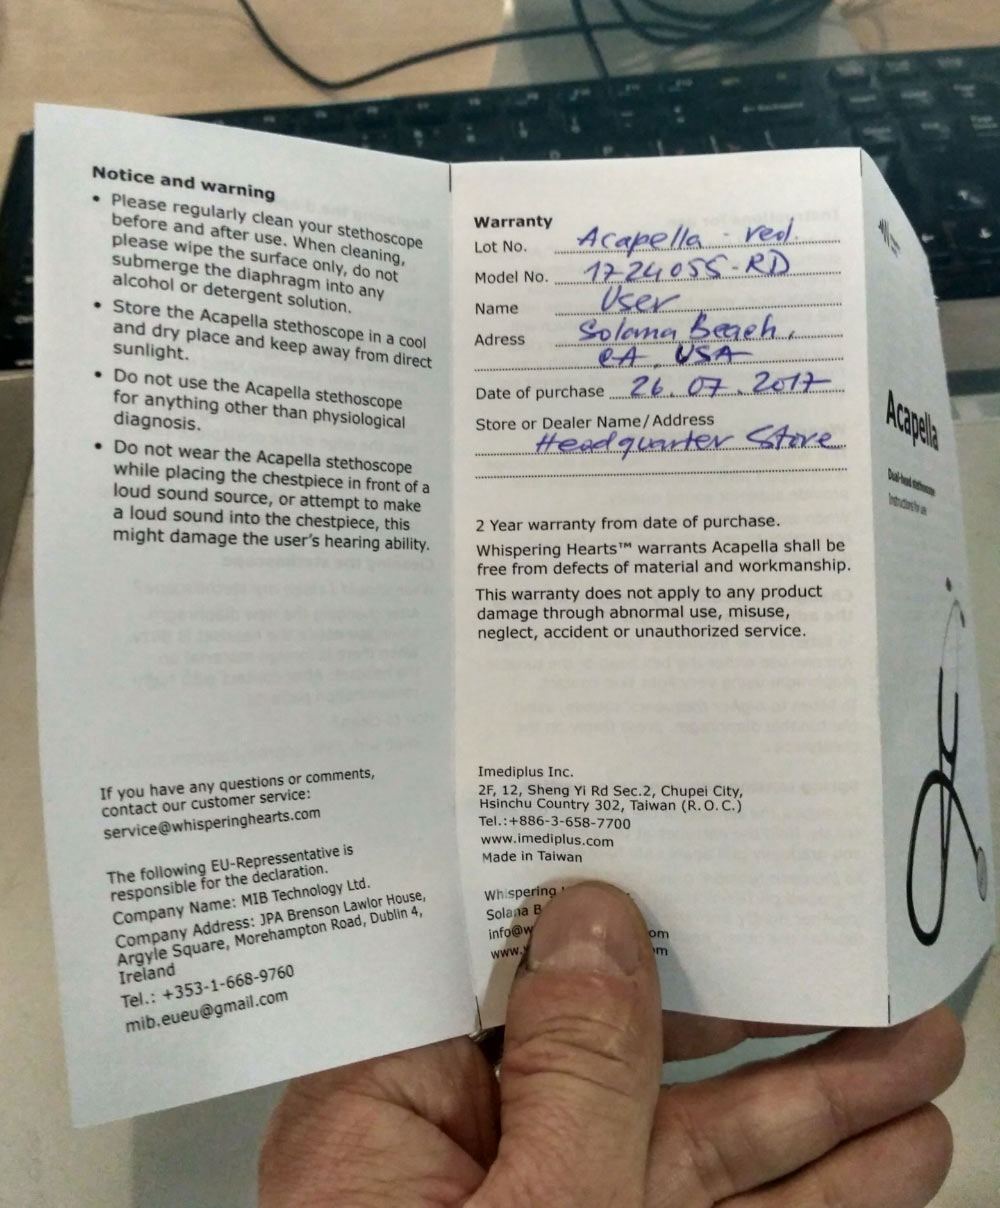 Notice and warning
• Please regularly clean your stethoscope
before and after use. When cleaning,
please wipe the surface only, do not
submerge the diaphragm into any
alcohol or detergent solution.
• Store the Acapella stethoscope in a cool
and dry place and keep away from direct
sunlight.
• Do not use the Acapella stethoscope
for anything other than physiological
diagnosis.
• Do not wear the Acapella stethoscope
while placing the chestpiece in front of a
loud sound source, or attempt to make
a loud sound into the chestpiece, this
might damage the user's hearing ability.
If you have any questions or comments,
contact our customer service:
service@whisperinghearts.com
The following EU-Representative is
responsible for the declaration.
Company Name: MIB Technology Ltd.
Company Address: JPA Brenson Lawlor House,
Argyle Square, Morehampton Road, Dublin 4,
Ireland
Tel.: +353-1-668-9760
mib.eueu@gmail.com
Warranty
Lot No. Acapella - red.
Model No. 1724055-RD
Name User
Adress Solana Beach,
CA, USA
Date of purchase 26.07.2017
Store or Dealer Name/Address
Headquarter Store
2 Year warranty from date of purchase.
Whispering Hearts™ warrants Acapella shall be
free from defects of material and workmanship.
This warranty does not apply to any product
damage through abnormal use, misuse,
neglect, accident or unauthorized service.
Imediplus Inc.
2F, 12, Sheng Yi Rd Sec.2, Chupei City,
Hsinchu Country 302, Taiwan (R.O.C.)
Tel.:+886-3-658-7700
www.imediplus.com
Made in Taiwan
Whispering
Solana B
info@w om
www. m
Acapella
Dual-head stethoscope
Instructions for use